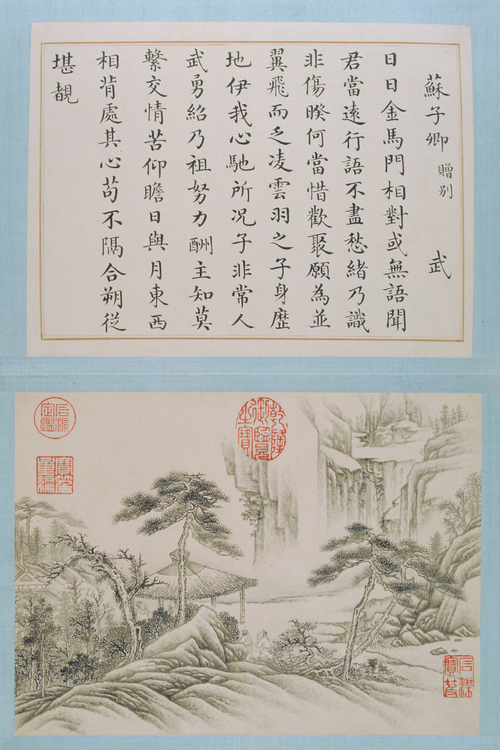 蘇子卿 贈別 武
日日金馬門相對或無語聞
君當遠行語不盡愁緒乃識
非傷睽何當惜歡聚願為並
翼飛而乏凌雲羽之子身歷
地伊我心馳所况子非常人
武勇紹乃祖努力酬主知莫
繫交情苦仰瞻日與月東西
相背處其心苟不隔合朔從
堪覩
乾隆御覽之寶
石渠定鑑
寶笈重編
石渠寶笈